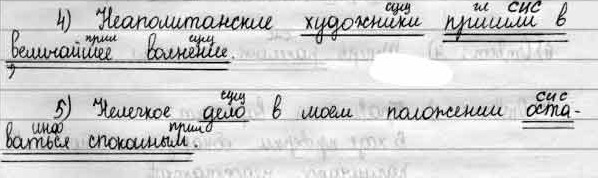 сущ гл СИС
4) Неаполитанские художники пришли в
прил сущ
величайшее волнение.
сущ СИС
5) Нелегкое дело в моем положении оста-
инф прил
ваться спокойным.